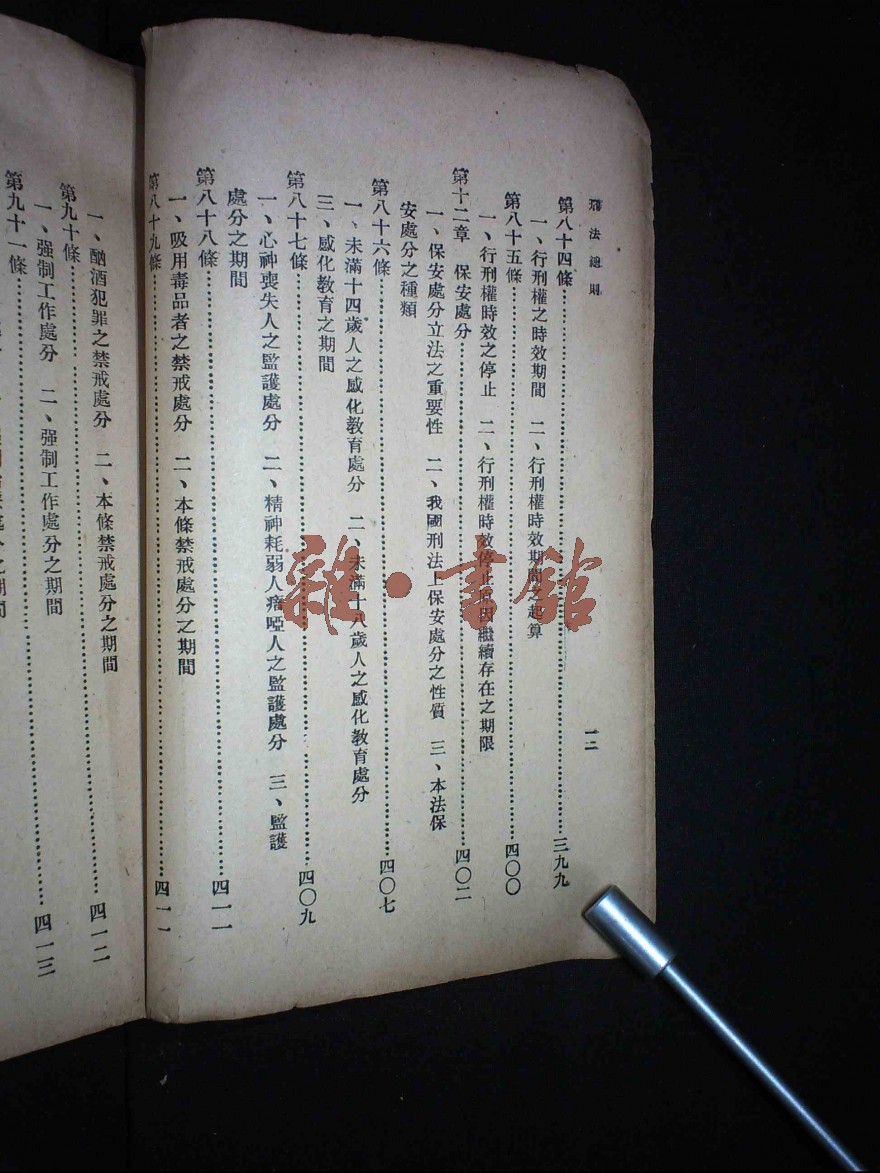 刑法總則
一二
第八十四條……三九九
一、行刑權之時效期間　二、行刑權時效期間之起算
第八十五條……四〇〇
一、行刑權時效之停止　二、行刑權時效停止原因繼續存在之期限
第十二章　保安處分……四〇二
一、保安處分立法之重要性　二、我國刑法上保安處分之性質　三、本法保
安處分之種類
第八十六條……四〇七
一、未滿十四歲人之感化教育處分　二、未滿十八歲人之感化教育處分
三、感化教育之期間
第八十七條……四〇九
一、心神喪失人之監護處分　二、精神耗弱人瘖啞人之監護處分　三、監護
處分之期間
第八十八條……四一一
一、吸用毒品者之禁戒處分　二、本條禁戒處分之期間
第八十九條……四一一
一、酗酒犯罪之禁戒處分　二、本條禁戒處分之期間
第九十條……四一二
一、强制工作處分　二、强制工作處分之期間
第九十一條……四一三
雜·書館